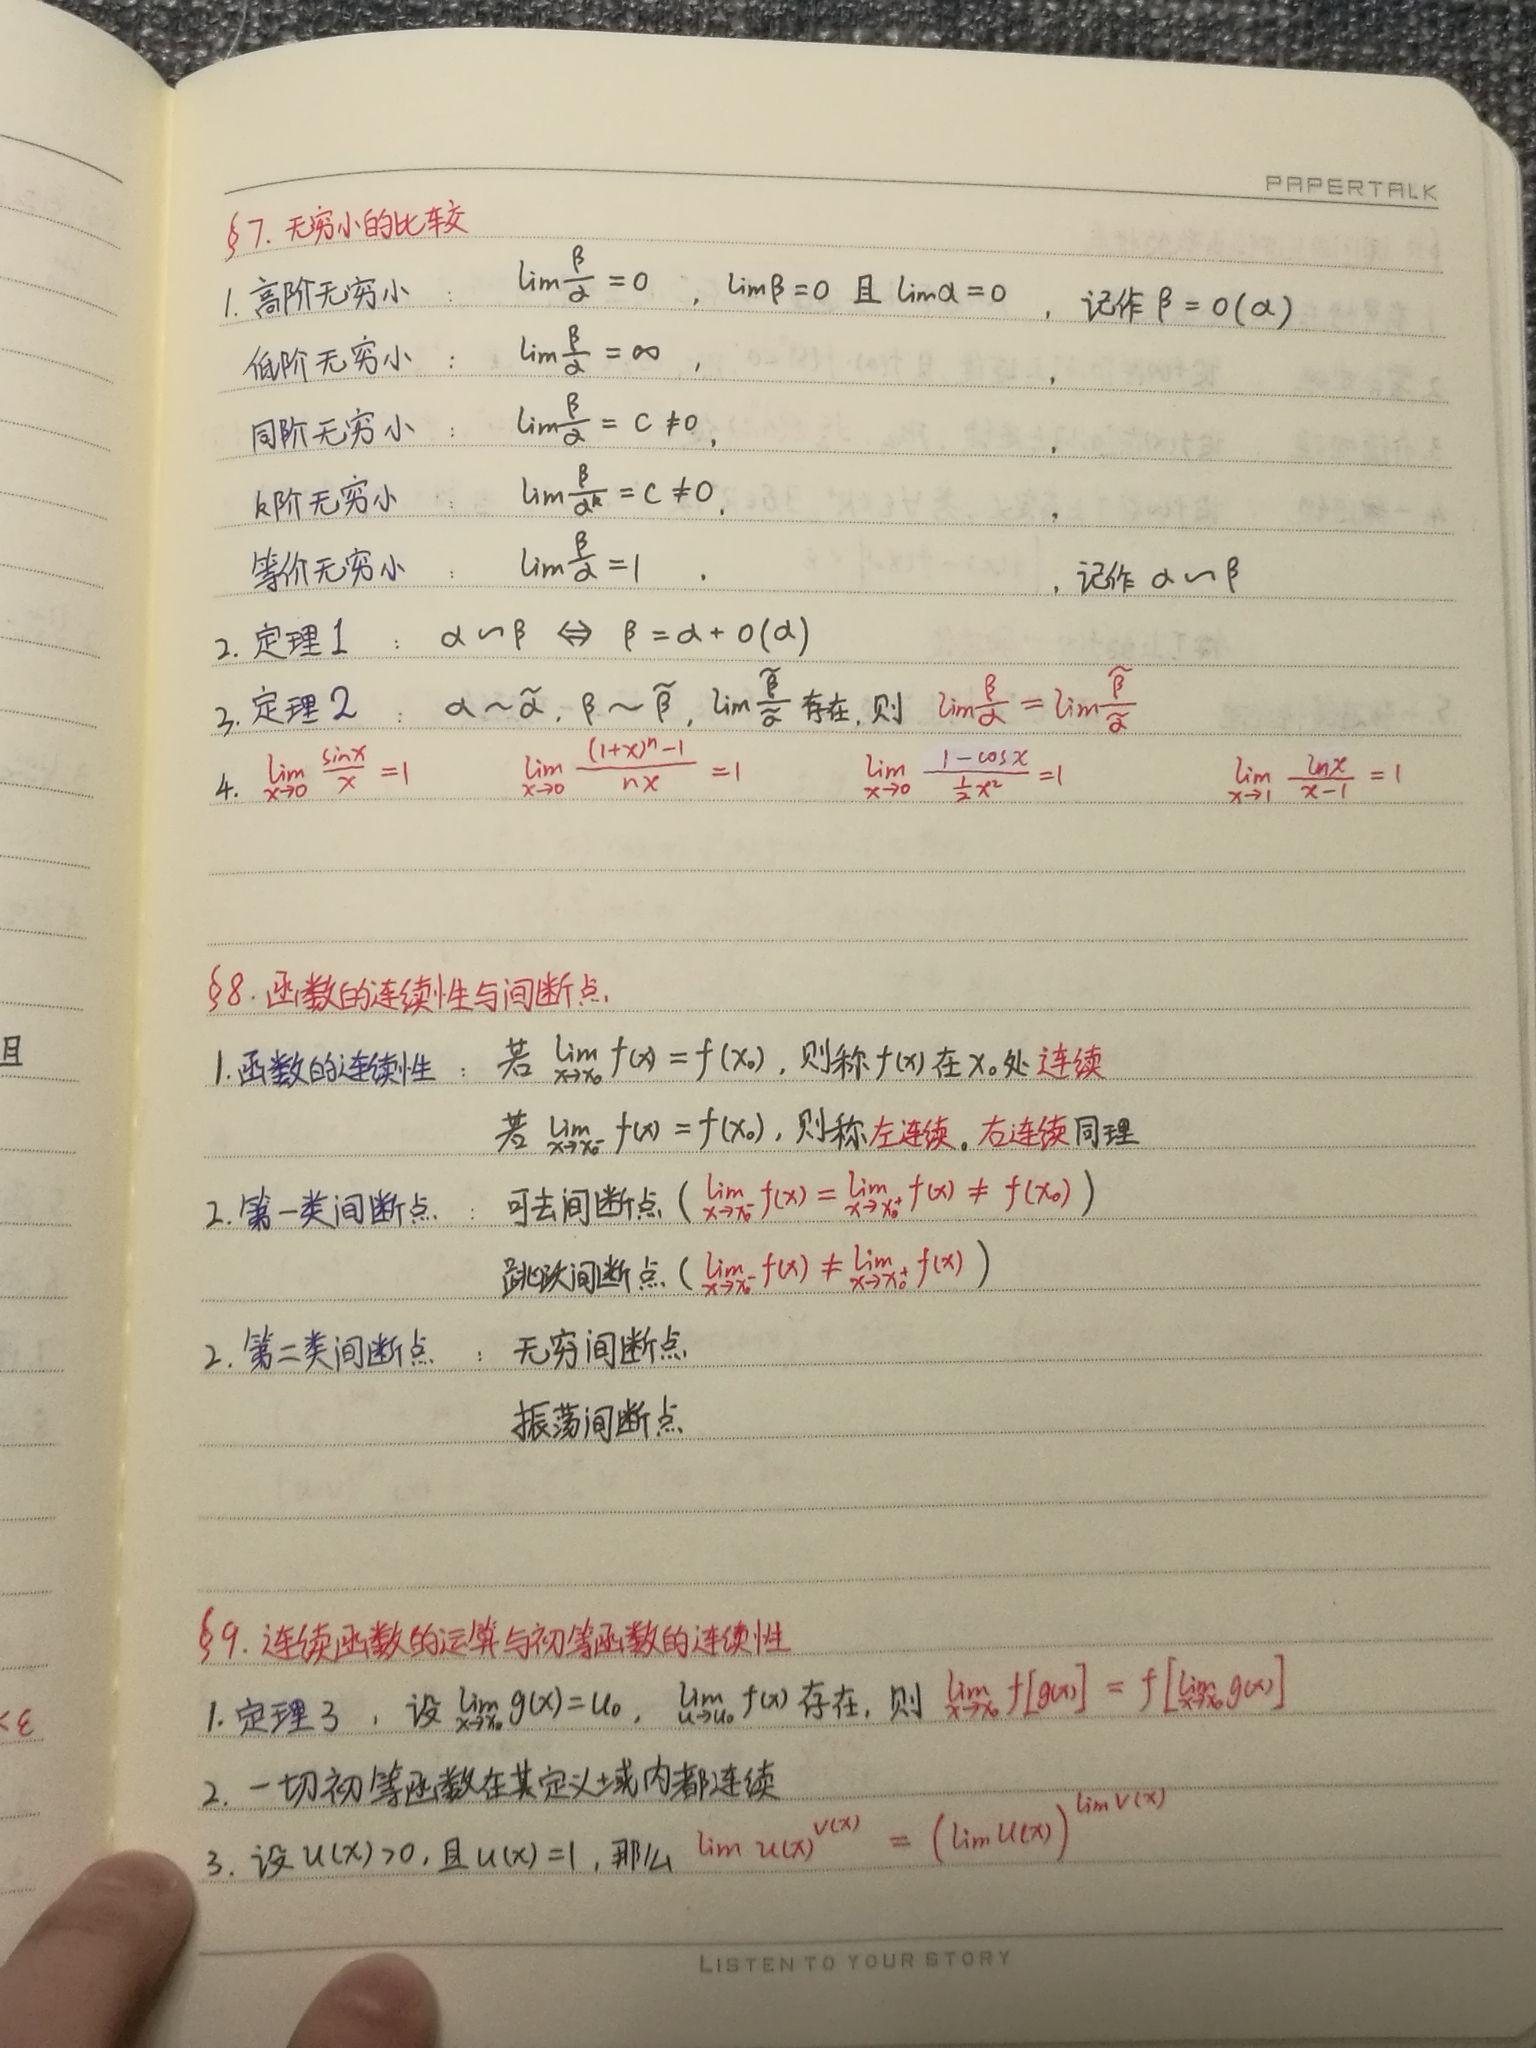 PAPERTALK
§7. 无穷小的比较
1. 高阶无穷小 : lim β/α = 0 , lim β = 0 且 lim α = 0 , 记作 β = o(α)
低阶无穷小 : lim β/α = ∞ , ,
同阶无穷小 : lim β/α = C ≠ 0, ,
k阶无穷小 : lim β/α^k = C ≠ 0, ,
等价无穷小 : lim β/α = 1 , , 记作 α ∽ β
2. 定理1 : α ∽ β ⇔ β = α + o(α)
3. 定理2 : α ~ α̃, β ~ β̃, lim β̃/α̃ 存在, 则 lim β/α = lim β̃/α̃
4. lim x→0 sinx/x = 1 lim x→0 ((1+x)^n − 1)/(nx) = 1 lim x→0 (1 − cosx)/(½x²) = 1 lim x→1 lnx/(x−1) = 1
§8. 函数的连续性与间断点
1. 函数的连续性 : 若 lim x→x₀ f(x) = f(x₀), 则称 f(x) 在 x₀ 处 连续
若 lim x→x₀⁻ f(x) = f(x₀), 则称左连续。右连续同理
2. 第一类间断点 : 可去间断点 ( lim x→x₀⁻ f(x) = lim x→x₀⁺ f(x) ≠ f(x₀) )
跳跃间断点 ( lim x→x₀⁻ f(x) ≠ lim x→x₀⁺ f(x) )
2. 第二类间断点 : 无穷间断点
振荡间断点
§9. 连续函数的运算与初等函数的连续性
1. 定理3 , 设 lim x→x₀ g(x) = u₀, lim u→u₀ f(x) 存在, 则 lim x→x₀ f[g(x)] = f[lim x→x₀ g(x)]
2. 一切初等函数在其定义域内都连续
3. 设 u(x) > 0, 且 u(x) = 1, 那么 lim u(x)^v(x) = (lim u(x))^lim v(x)
LISTEN TO YOUR STORY
且
<ε